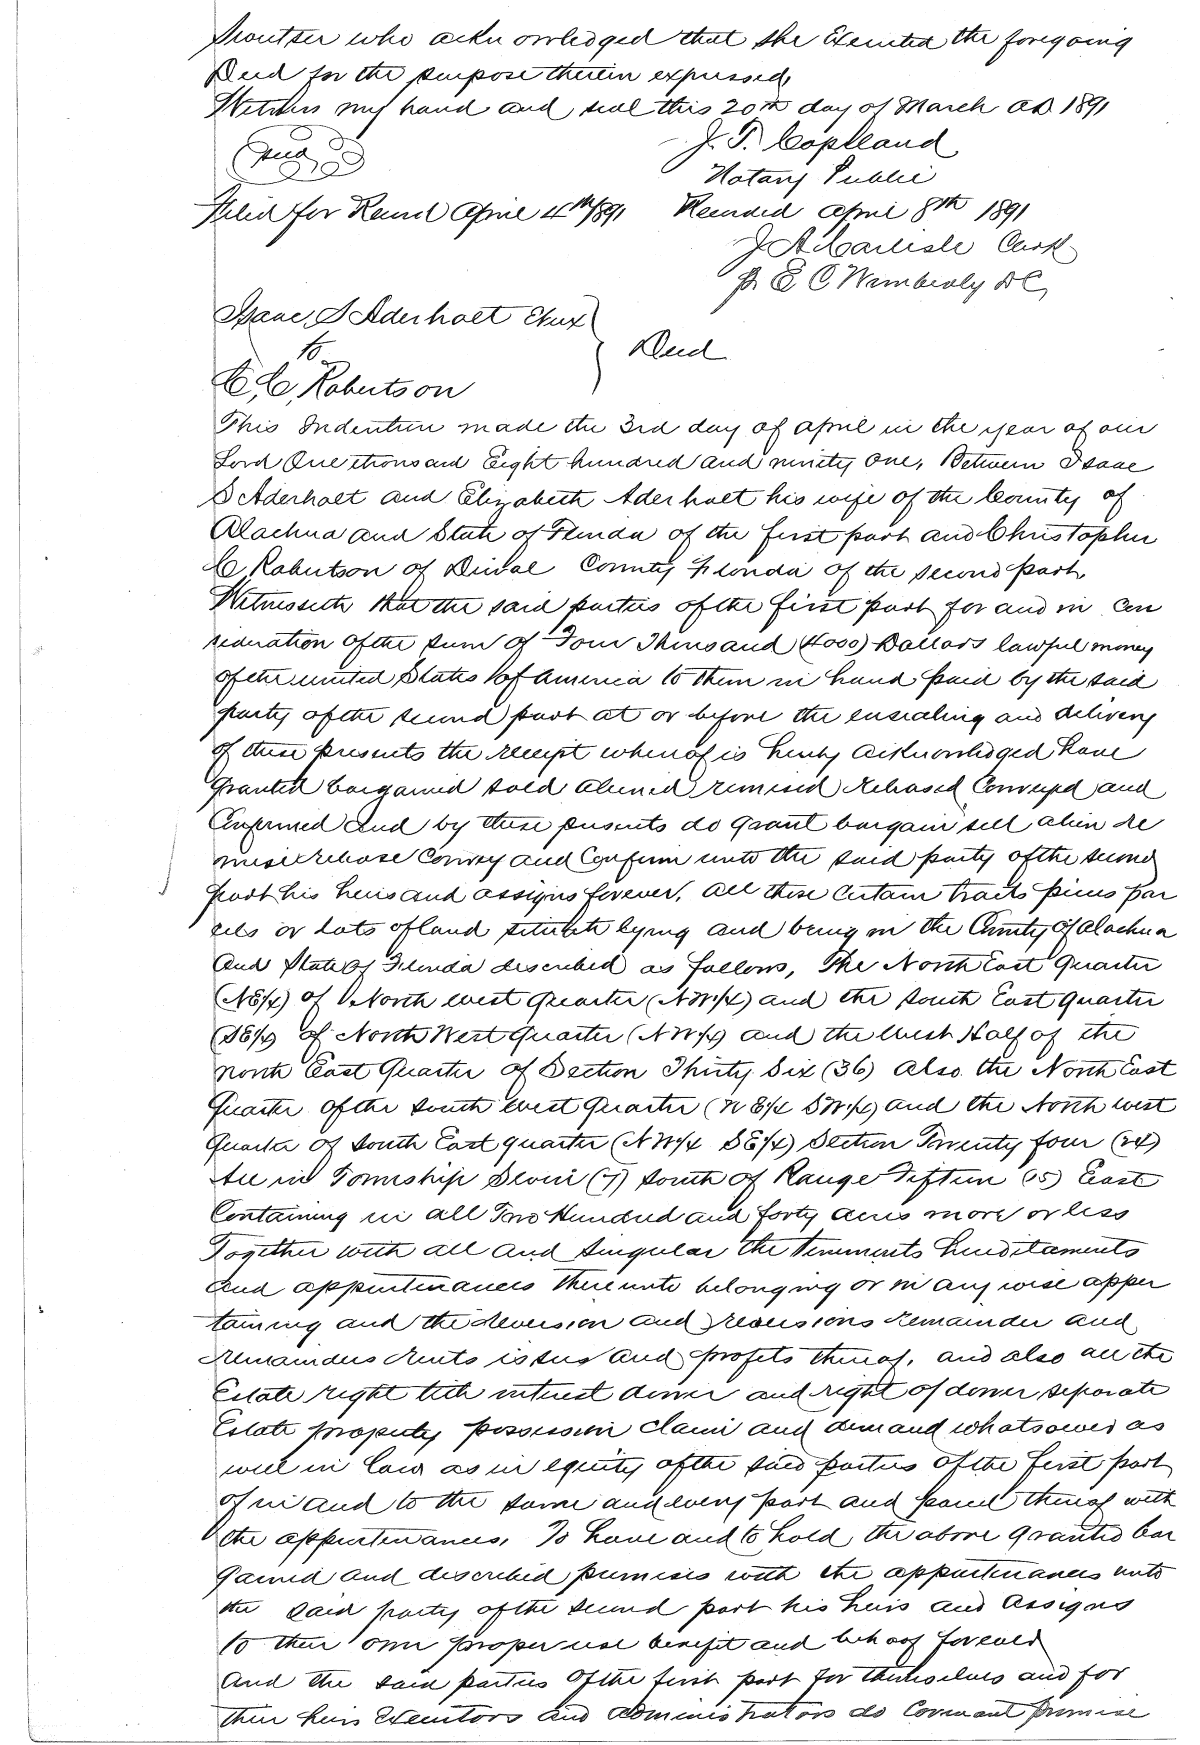 who acknowledged that she Executed the foregoing
Deed for the purpose therein expressed
Witness my hand and seal this 20th day of March AD. 1891
Seal J. T. Copeland
Notary Public
Filed for Record April 4th/891 Recorded April 8th 1891
J A Carlisle Clerk
pr E C Wimberly DC,
Isaac S Aderholt Etux
to
C, C, Robertson
Deed
This Indenture made the 3rd day of April in the year of our
Lord One thousand Eight hundred and ninety one, Between Isaac
S Aderholt and Elizabeth Aderholt his wife of the County of
Alachua and State of Florida of the first part and Christopher
C Robertson of Duval County Florida of the second part,
Witnesseth that the said parties of the first part for and in con
sideration of the sum of Four Thousand (4000) Dollars lawful money
of the united States of America to them in hand paid by the said
party of the second part at or before the ensealing and delivery
of these presents the receipt whereof is hereby acknowledged have
granted bargained sold aliened remised released Conveyed and
Confirmed and by these presents do grant bargain sell alien re
mise release Convey and Confirm unto the said party of the second
part his heirs and assigns forever, all those certain tracts pieces par
cels or lots of land situate lying and being in the County of Alachua
And State of Florida described as follows, The North East Quarter
(NE/4) of North west quarter (NW/4) and the South East Quarter
(SE/4) of North West Quarter (NW/4) and the West Half of the
north East Quarter of Section Thirty Six (36) Also the North East
Quarter of the south west Quarter (NE/4 SW/4) and the North west
Quarter of South East quarter (NW/4 SE/4) Section Twenty four (24)
All in Township Seven (7) South of Range Fifteen (15) East
Containing in all Two Hundred and forty acres more or less
Together with all and singular the tenements hereditaments
and appurtenances thereunto belonging or in any wise apper
taining and the reversion and reversions remainder and
remainders rents issues and profits thereof, and also all the
Estate right title interest dower and right of dower separate
Estate property possession claim and demand whatsoever as
well in law as in equity of the said parties of the first part
of in and to the same and every part and parcel thereof with
the appurtenances, To have and to hold the above granted bar
gained and described premises with the appurtenances unto
the said party of the second part his heirs and assigns
to their own proper use benefit and behoof forever
And the said parties of the first part for themselves and for
their heirs Executors and administrators do Covenant promise